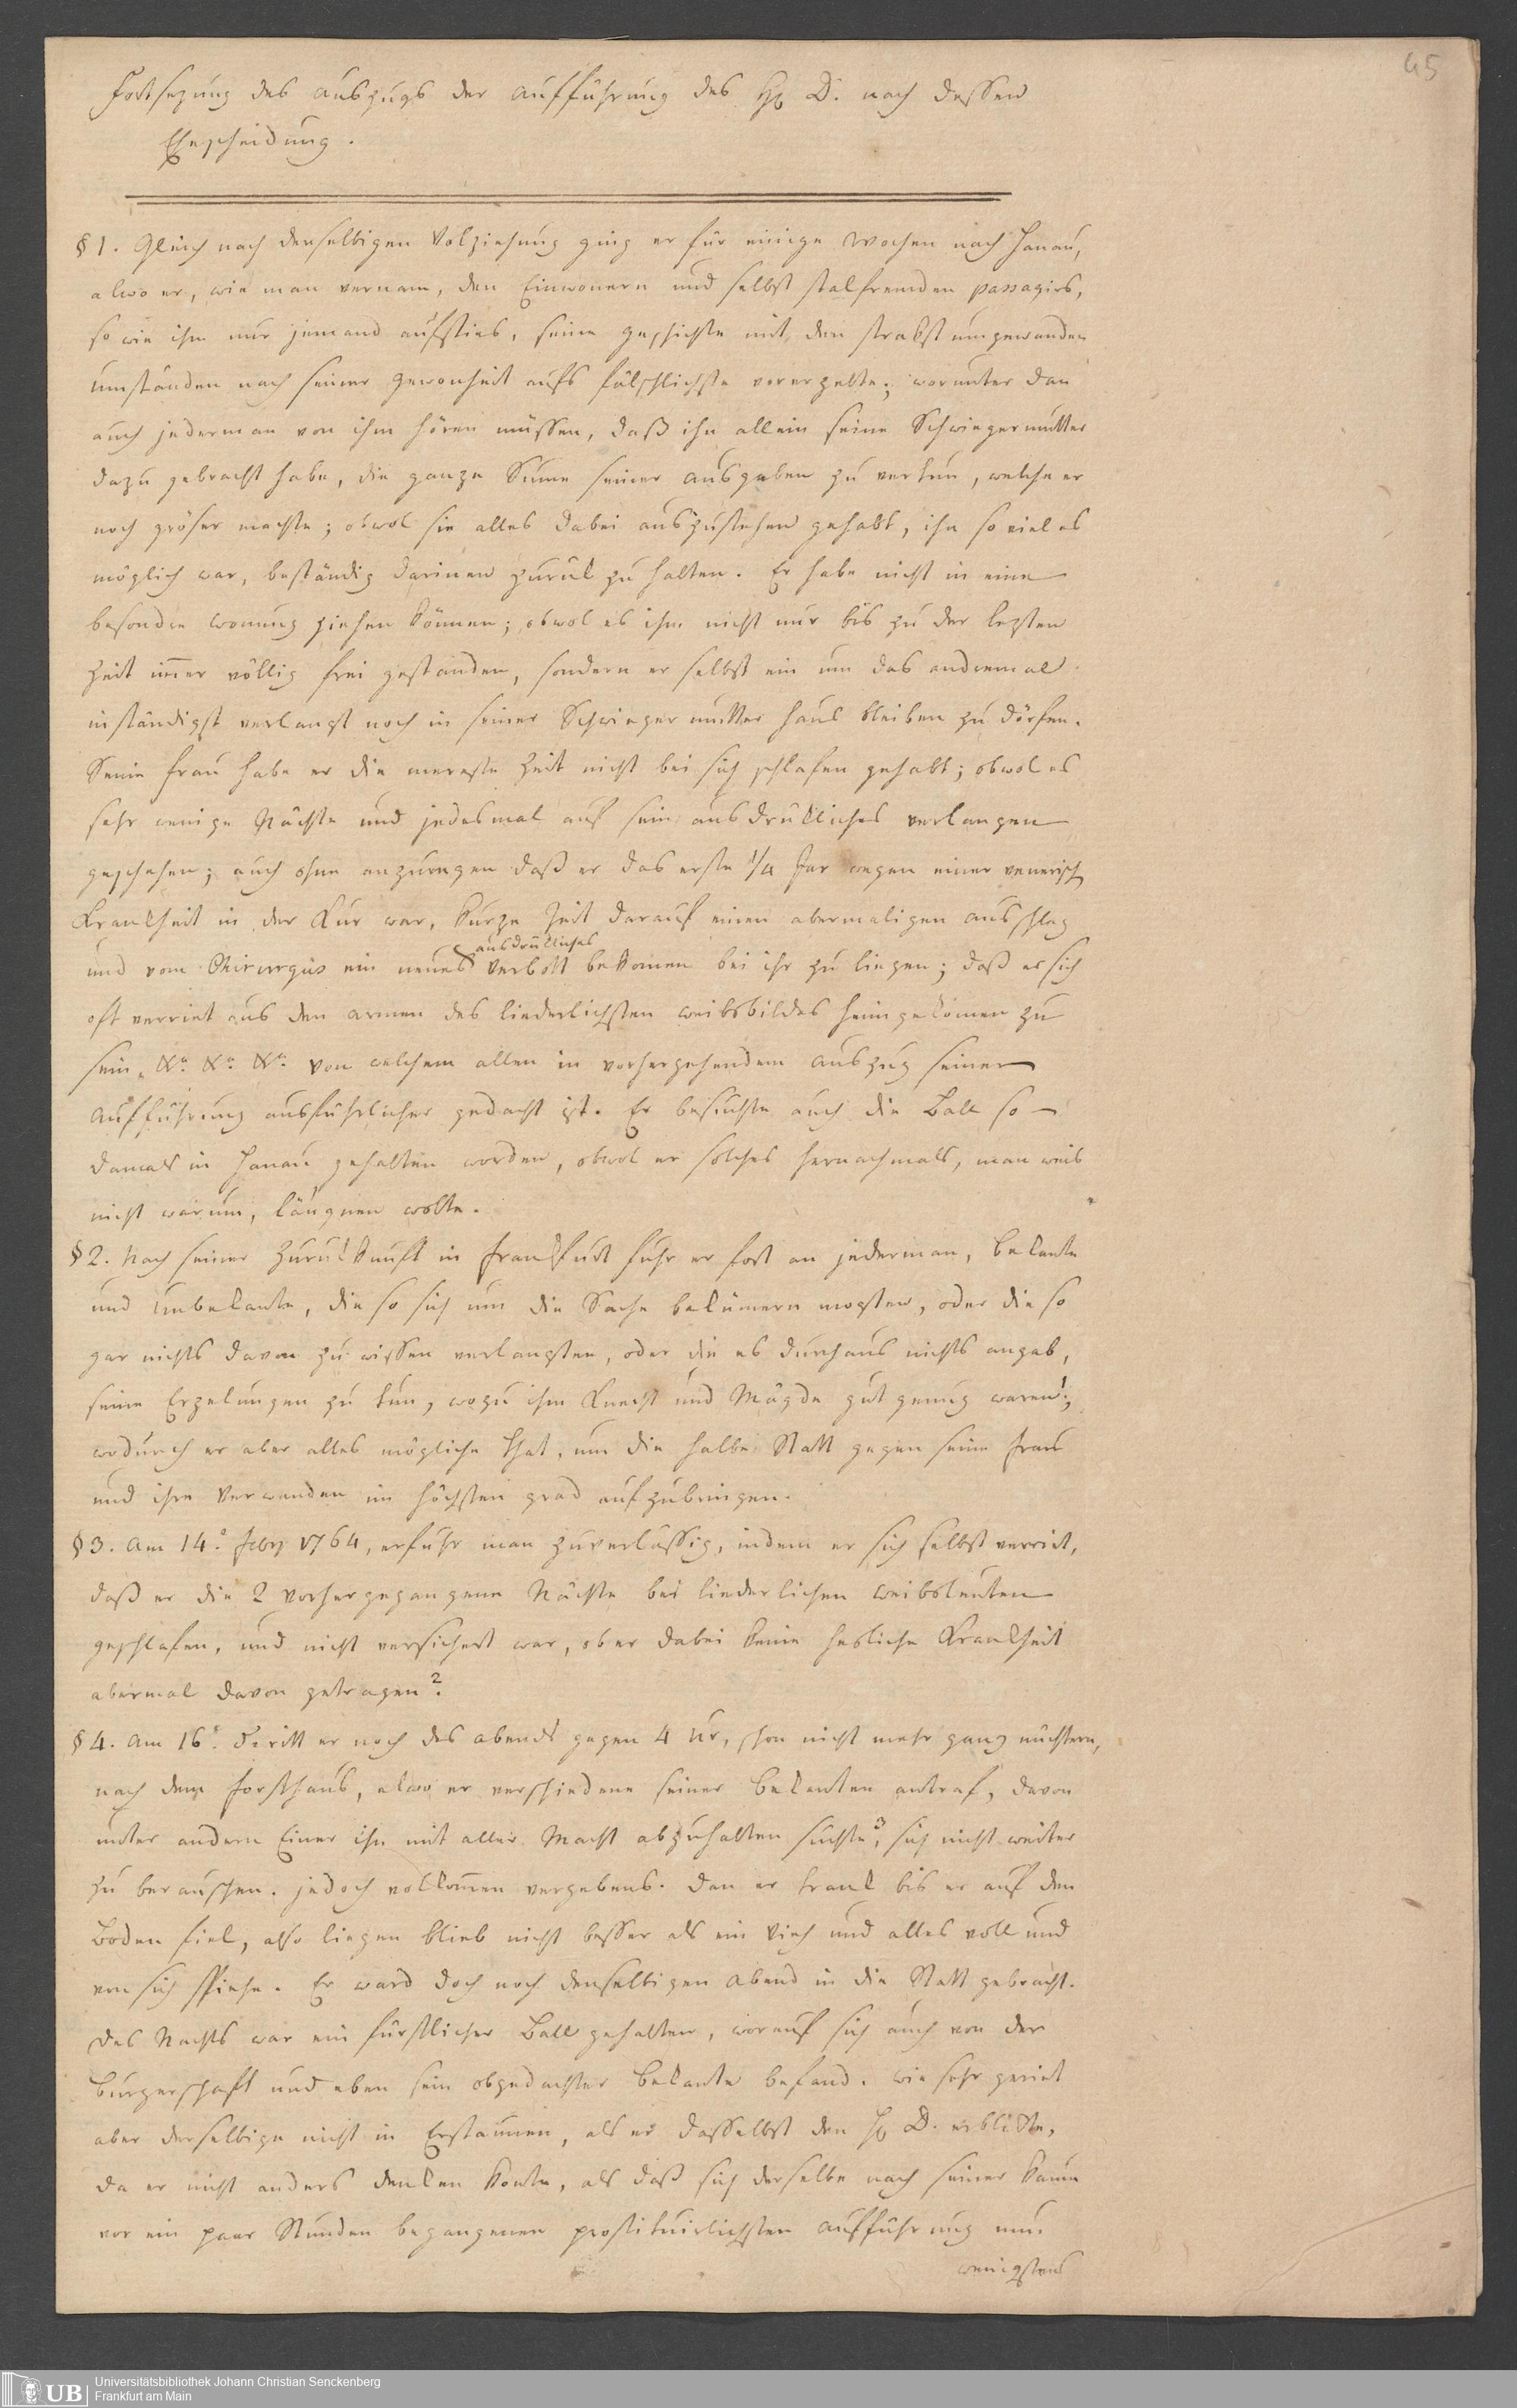 45
Fortsezung des auszugs der aufführung des H. D. nach dessen
Ehescheidung.
§ 1. Gleich nach derselbigen Volziehung ging er für einige Wochen nach Hanau,
alwo er, wie man vernam, den Einwonern und selbst stalfremden passagirs,
so wie ihm nur jemand aufsties, seine geschichte mit den strakst umgewanden
umständen nach seiner gewonheit aufs fälschlichste vorerzelte; worunter dan
auch jederman von ihm hören müssen, daß ihn allein seine Schwiegermutter
dazu gebracht habe, die ganze Sume seiner ausgaben zu vertun, welche er
noch gröser machte; obwol sie alles dabei auszustehen gehabt, ihn so viel es
möglich war, beständig darinen zuruk zu halten. Er habe nicht in eine
besondre wonung ziehen können; obwol es ihm nicht nur bis zu der lezten
Zeit imer völlig frei gestanden, sondern er selbst ein um das andremal
inständigst verlangt noch in seiner Schwieger mutter haus bleiben zu dörfen.
Seine frau habe er die mereste Zeit nicht bei sich schlafen gehabt; obwol es
sehr wenige Nächte und jedesmal auf sein ausdrükliches verlangen
geschehen; auch ohne anzuregen daß er das erste 1/4 Jar wegen einer venerisch
Krankheit in der Kur war, kurze Zeit darauf einen abermaligen ausschlag
ausdrükliches
und vom Chirurgus ein neues verbott bekomen bei ihr zu liegen; daß er sich
oft verriet aus den armen des liederlichsten weibsbildes heimgekomen zu
sein. &c. &c. &c. von welchem allen in vorhergehendem auszug seiner
aufführung ausführlicher gedacht ist. Er besuchte auch die Ball so
damals in Hanau gehalten worden, obwol er solches hernachmals, man weis
nicht warum, läugnen wolte.
§ 2. Nach seiner zurukkunft in Frankfurt fuhr er fort an jederman, bekante
und Unbekante, die so sich um die Sache bekümern mogten, oder die so
gar nichts davon zu wissen verlangten, oder die es durchaus nichts angab,
seine Erzelungen zu tun, wozu ihm Knecht und Mägde gut genug waren 1;
wodurch er aber alles mögliche that, um die halbe Statt gegen seine frau
und ihre Verwanden im höchsten grad aufzubringen.
§ 3. am 14.° febr 1764, erfuhr man zuverlässig, indem er sich selbst verriet,
daß er die 2 vorhergegangene Nächte bei liederlichen weibsleuten
geschlafen, und nicht versichert war, ob er dabei keine hesliche Krankheit
abermal davon getragen 2.
§ 4. am 16.° dº ritt er noch des abends gegen 4 Ur, schon nicht mehr ganz nüchtern,
nach dem forsthaus, alwo er verschiedene seiner bekanten antraf, davon
unter andern Einer ihn mit aller Macht abzuhalten suchte 3, sich nicht weiter
zu berauschen. jedoch vollkomen vergebens. dan er trank bis er auf den
Boden fiel, also liegen blieb nicht besser als ein Vieh und alles voll und
von sich spiehe. Er ward doch noch denselbigen abend in die Statt gebracht.
des Nachts war ein fürstlicher Ball gehalten, worauf sich auch von der
burgerschaft und eben sein obgedachter bekante befand. wie sehr geriet
aber derselbige nicht in Erstaunen, als er dasselbst den H. D. erblikte,
da er nicht anders denken konte, als daß sich derselbe nach seiner kaum
vor ein paar Stunden begangenen prostituirlichsten aufführung nun
wenigstens
UB
Universitätsbibliothek Johann Christian Senckenberg
Frankfurt am Main